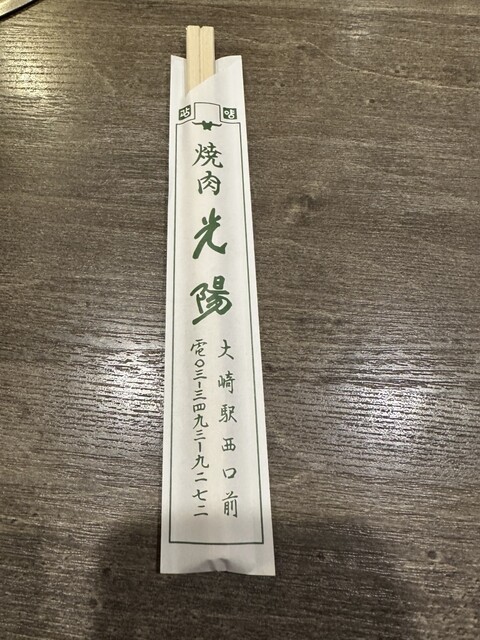 광 양
焼肉
光陽
大崎駅西口前
電〇三ー三四九三ー九二七二